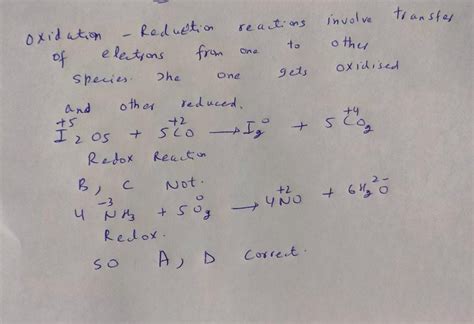 Oxidation - Reduction reactions involve transfer
of electrons from one to other
species. The one gets oxidised
and other reduced.
+5 +2 0 +4
I2O5 + 5CO → I2 + 5CO2
Redox Reaction
B, C Not.
-3 0 +2 2-
4 NH3 + 5O2 → 4NO + 6H2O
Redox.
so A, D Correct.